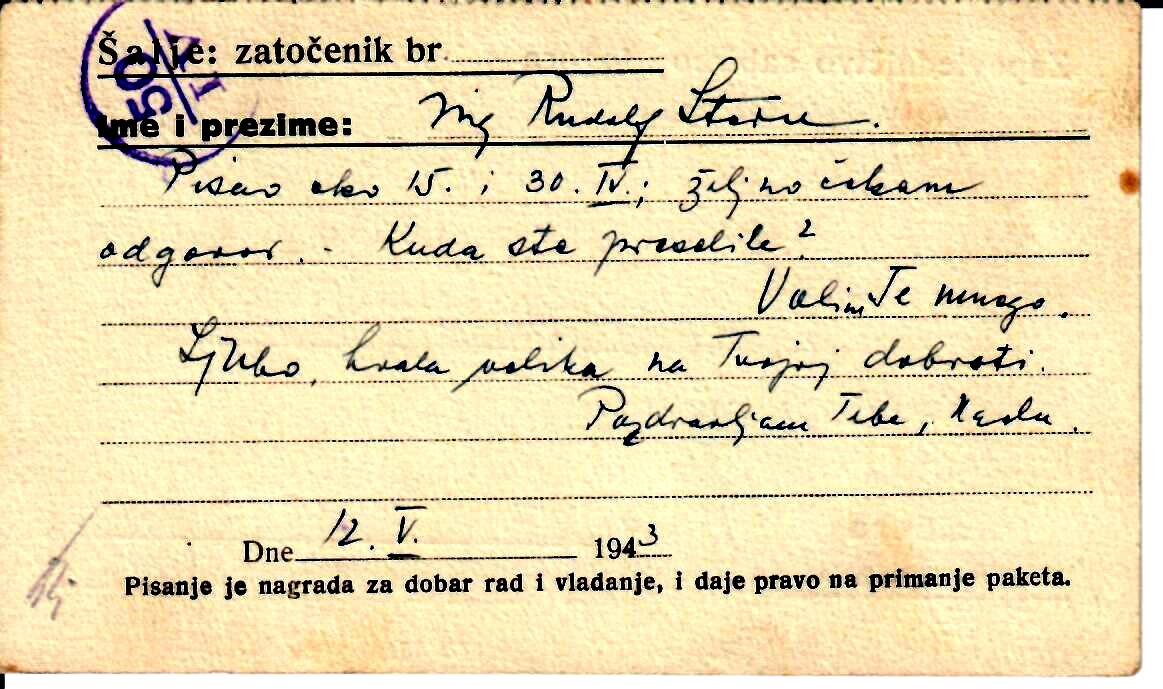 Šalje: zatočenik br
Ime i prezime: Ing Rudolf
Pisao oko 15. i 30. IV.; željno čekam
odgovor. - Kuda ste preselile?
Volim Te mnogo.
Ljubo, hvala velika na Tvojoj dobroti.
Pozdravljam Tebe,
Dne 12. V. 1943
Pisanje je nagrada za dobar rad i vladanje, i daje pravo na primanje paketa.